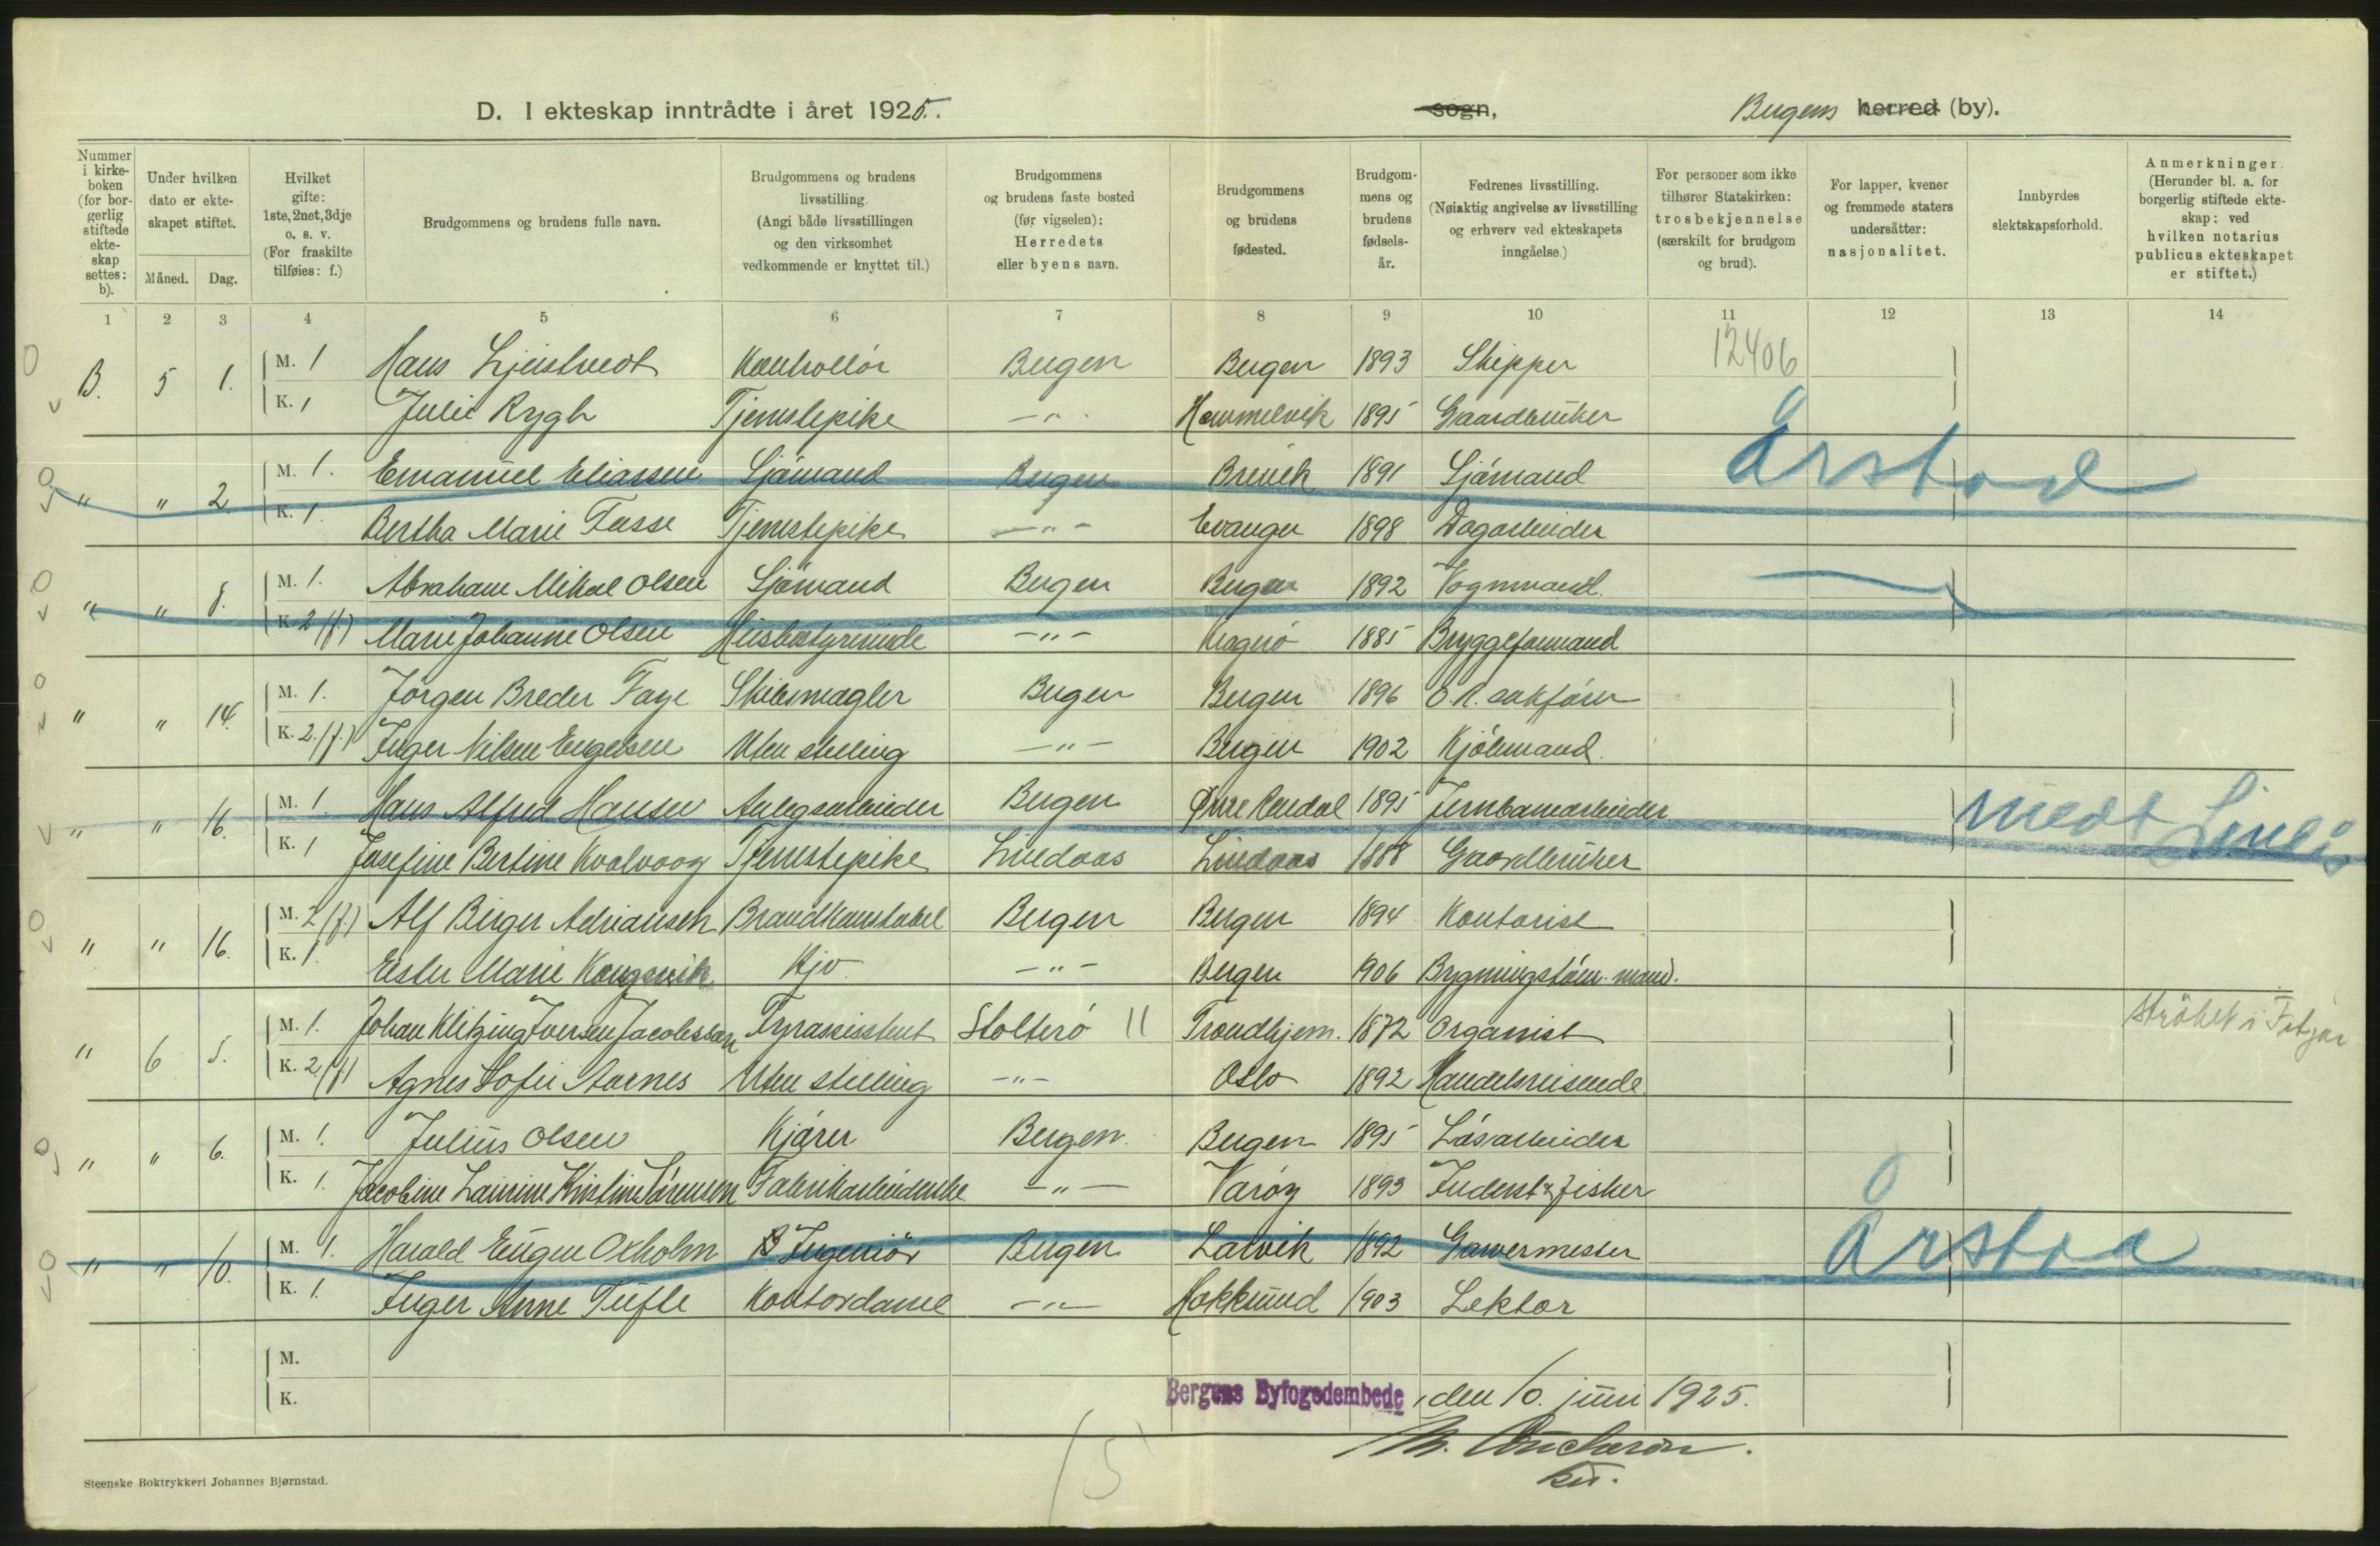 D. I ekteskap inntrådte i året 1925. sogn, Bergens herred (by).
Nummer i kirkeboken (for borgerlig stiftede ekteskap settes: b).
Under hvilken dato er ekteskapet stiftet.
Måned. Dag.
Hvilket gifte: 1ste, 2net, 3dje o. s. v. (For fraskilte tilføies: f.)
Brudgommens og brudens fulle navn.
Brudgommens og brudens livsstilling. (Angi både livsstillingen og den virksomhet vedkommende er knyttet til.)
Brudgommens og brudens faste bosted (før vigselen): Herredets eller byens navn.
Brudgommens og brudens fødested.
Brudgommens og brudens fødselsår.
Fedrenes livsstilling. (Nøiaktig angivelse av livsstilling og erhverv ved ekteskapets inngåelse.)
For personer som ikke tilhører Statskirken: trosbekjennelse (særskilt for brudgom og brud).
For lapper, kvener og fremmede staters undersåtter: nasjonalitet.
Innbyrdes slektskapsforhold.
Anmerkninger. (Herunder bl. a. for borgerlig stiftede ekteskap: ved hvilken notarius publicus ekteskapet er stiftet.)
1 2 3 4 5 6 7 8 9 10 11 12 13 14
B. 5 1. M. 1 Hans Kontrollör Bergen Bergen 1893 Skipper 12406
K. 1 Julie Rygh Tjenestepike —"— Hommelvik 1895 Gaardbruker
" " 2. M. 1. Emanuel Eliassen Sjömand Bergen Brevik 1891 Sjömand Årstad
K. 1 Bertha Marie Fasse Tjenestepike —"— Evanger 1898 Dagarbeider
" " 8. M. 1. Abraham Mikal Olsen Sjömand Bergen Bergen 1892 Vognmand.
K. 2 (f.) Marie Johanne Olsen Husbestyrerinde —"— Kragerö 1885 Bryggeformand
" " 14. M. 1. Jörgen Breder Faye Skibsmægler Bergen Bergen 1896 O.R. sakförer
K. 2. (f.) Inger Nilsen Engelsen Uten stilling —"— Bergen 1902 Kjöbmand.
" " 16. M. 1. Hans Alfred Hansen Anlegsarbeider Bergen Øvre Rendal 1895 Jernbanearbeider
K. 1 Josefine Bertine Kvalvaag Tjenestepike Lindaas Lindaas 1888 Gaardbruker
" " 16. M. 2 (f.) Alf Birger Adriansen Brandkonstabel Bergen Bergen 1894 Kontorist
K. 1. Ester Marie Kongsvik —"— Bergen 1906 Bygningstöm.mand.
" 6 5. M. 1. Johan Klitzing Iversen Jacobssen Fyrassistent Trondhjem. 1872 Organist
K. 2. (f) Agnes Sofie Aarnes Uten stilling —"— Oslo 1892 Handelsreisende
" " 6. M. 1. Julius Olsen Kjörer Bergen Bergen 1895 Lösarbeider
K. 1. Jacobine Laurine Kristine Sörensen Fabrikarbeiderske —"— Varöy 1893 Inderst & fisker
" " 10. M. 1. Harald Eugen Oxholm Ingeniör Bergen Larvik 1892 Garvermester Årstad
K. 1. Inger Anne Tufte Kontordame —"— Hokksund 1903 Lektor
M.
K.
Bergens Byfogedembede, den 10. juni 1925.
Steenske Boktrykkeri Johannes Bjørnstad.